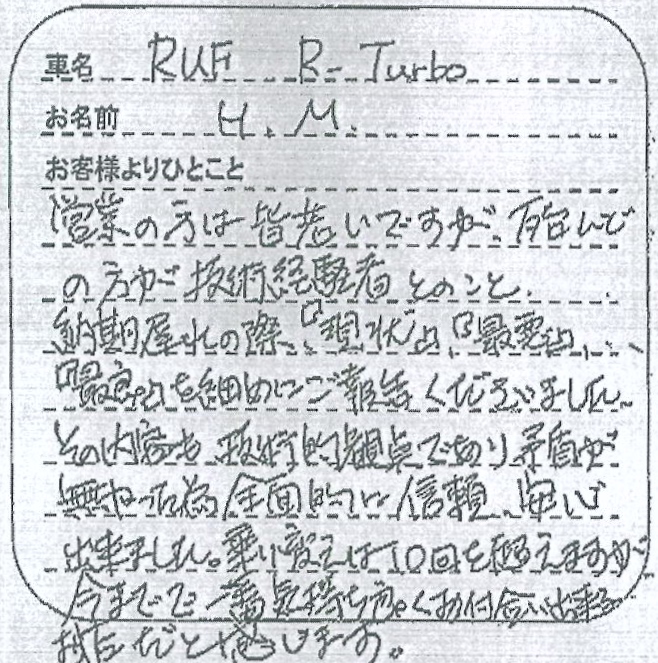 車名 RUF B-Turbo
お名前 H.M.
お客様よりひとこと
営業の方は皆若いですが、ほとんど
の方が技術経験者とのこと、
納期遅れの際、『現状』、『最悪』、
『最良』を細めにご報告くださいました。
その内容も技術的観点であり矛盾が
無かった為全面的に信頼、安心
出来ました。乗り変えは10回を超えますが
今までで一番気持ち良くお付合い出来る
お店だと感じます。